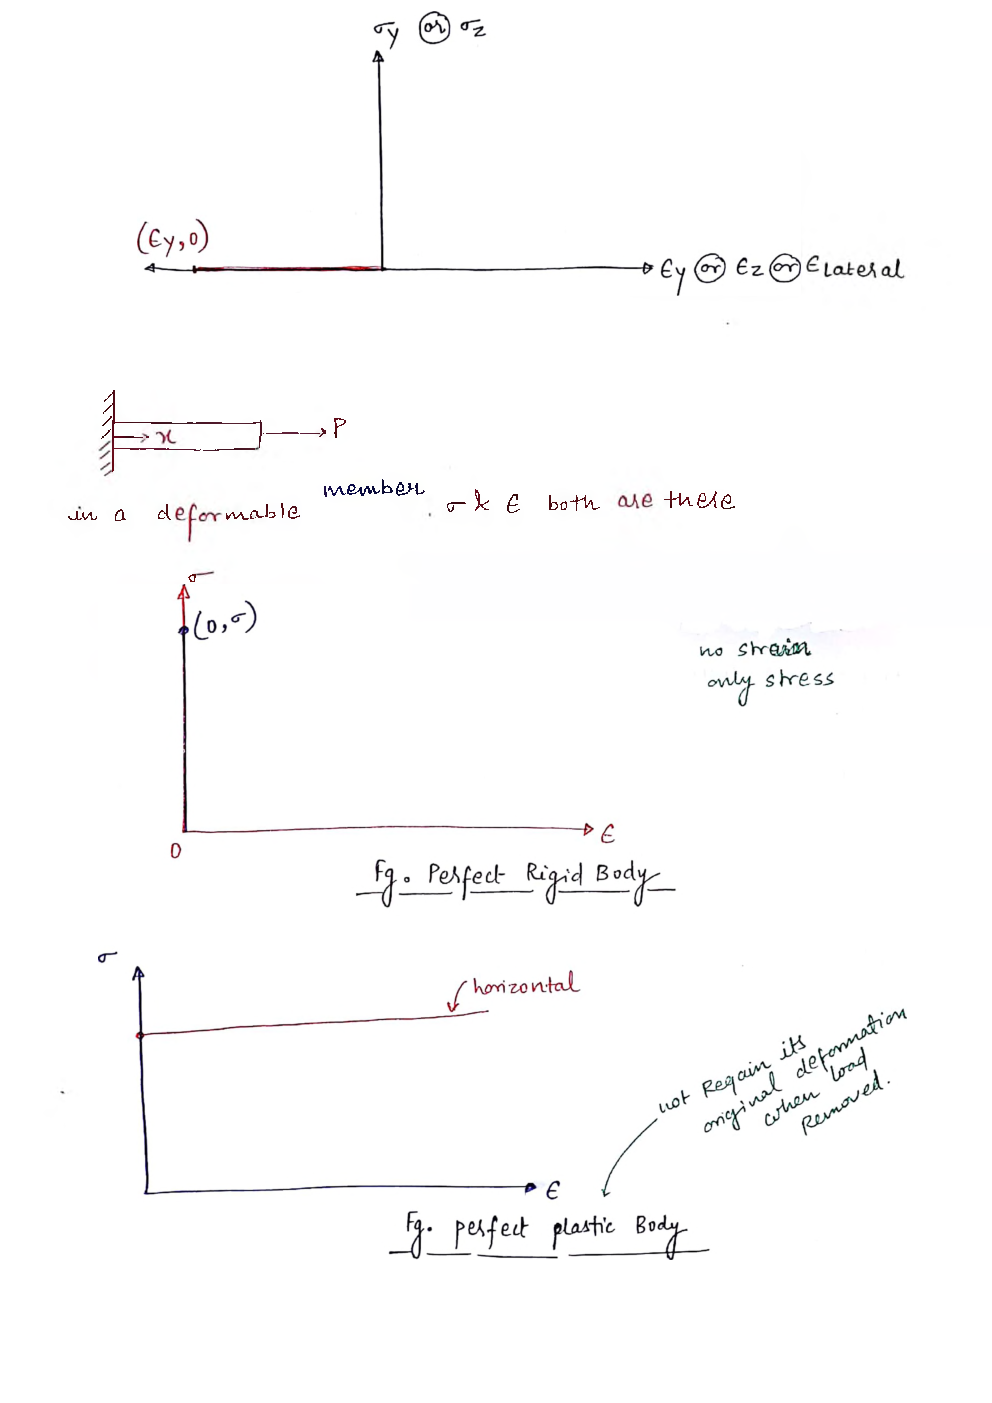 σy or σz
(ϵy,0)
ϵy or ϵz or ϵlateral
x
P
in a deformable member. σ & ϵ both are there
σ
(0,σ)
no strain
only stress
ϵ
0
Fg. Perfect Rigid Body
σ
horizontal
not Regain its
original deformation
when load
Removed.
ϵ
Fg. perfect plastic Body